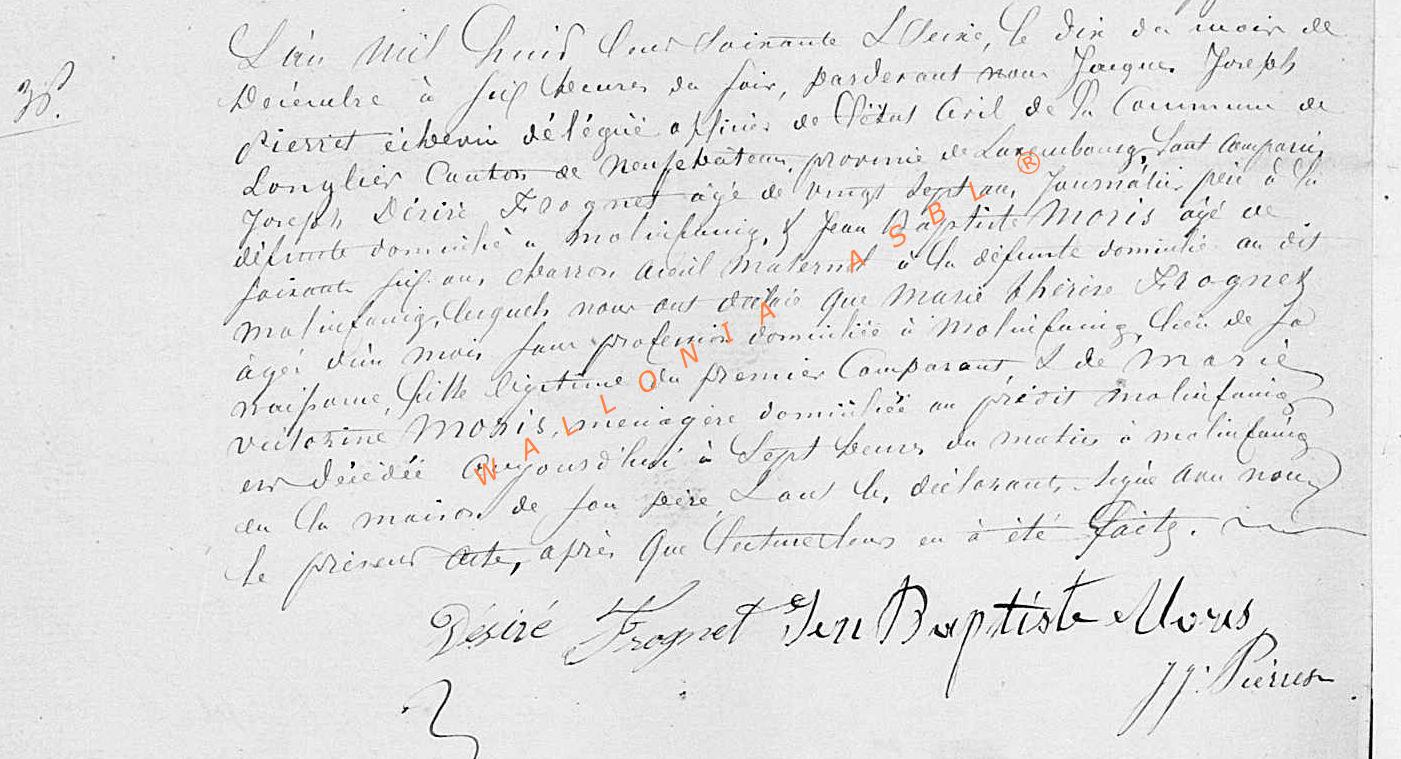 38.
L'an mil huit cent soixante & seize, le dix du mois de
Décembre à six heures du soir, pardevant nous Jacques Joseph
Pierret échevin délégué officier de l'état civil de la commune de
Longlier Canton de Neufchâteau, province de Luxembourg, sont comparus
Joseph Désiré Frognet âgé de vingt sept ans, Journalier père à la
défunte domicilié à molinfaing, & Jean Baptiste Moris âgé de
soixante six ans, charron aieul maternel à la défunte domicilié au dit
molinfaing, lesquels nous ont déclaré que Marie thérèse Frognet
âgée d'un mois sans profession domiciliée à molinfaing, lieu de sa
naissance, fille légitime du premier Comparant, & de marie
victorine Moris, ménagère domiciliée au prédit molinfaing
est décédée aujourd'hui à sept heures du matin à molinfaing
en la maison de son père, & ont les déclarants signé avec nous
le présent acte, après que lecture leur en à été faite.
Désiré Frognet Jen Baptiste Moris
JJ. Pierret
WALLONIA ASBL ®